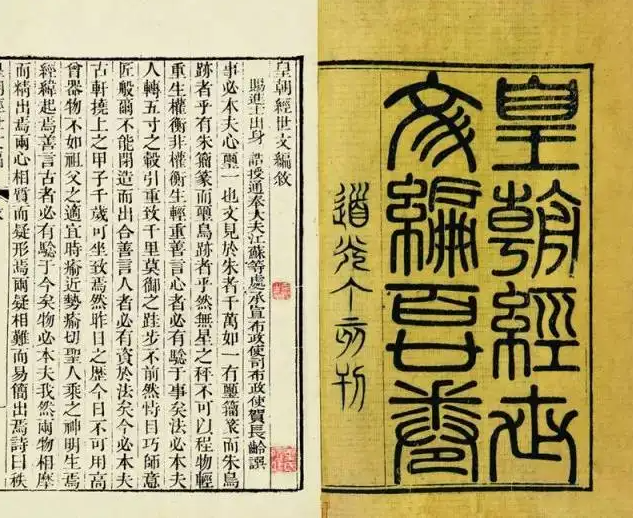 皇朝經世
文編百廿卷
道光丁亥刊
皇朝經世文編敘
賜進士出身 誥授通奉大夫江蘇等處承宣布政使司布政使賀長齡譔
事必本夫心璽一也文見於朱者千萬如一有璽籀篆而朱鳥
跡者乎有朱籀篆而璽鳥跡者乎然無星之秤不可以程物輕
重生權衡非權衡生輕重善言心者必有驗于事矣法必本夫
人轉五寸之轂引重致千里莫御之跬步不前然恃目巧師意
匠般爾不能閉造而出合善言人者必有資於法矣今必本夫
古軒撓上之甲子千歲可坐致焉然昨日之歷今日不可用高
曾器物不如祖父之適宜時瘉近勢瘉切聖人乘之神明生焉
經緯起焉善言古者必有驗于今矣物必本夫我然兩物相摩
而精出焉兩心相質而疑形焉兩疑相難而易簡出焉詩曰秩